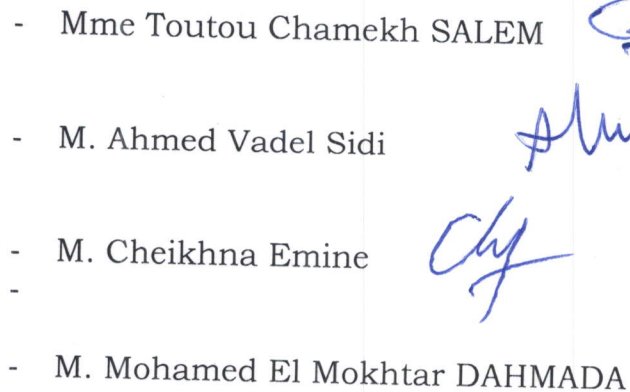 - Mme Toutou Chamekh SALEM
- M. Ahmed Vadel Sidi
- M. Cheikhna Emine
-
- M. Mohamed El Mokhtar DAHMADA